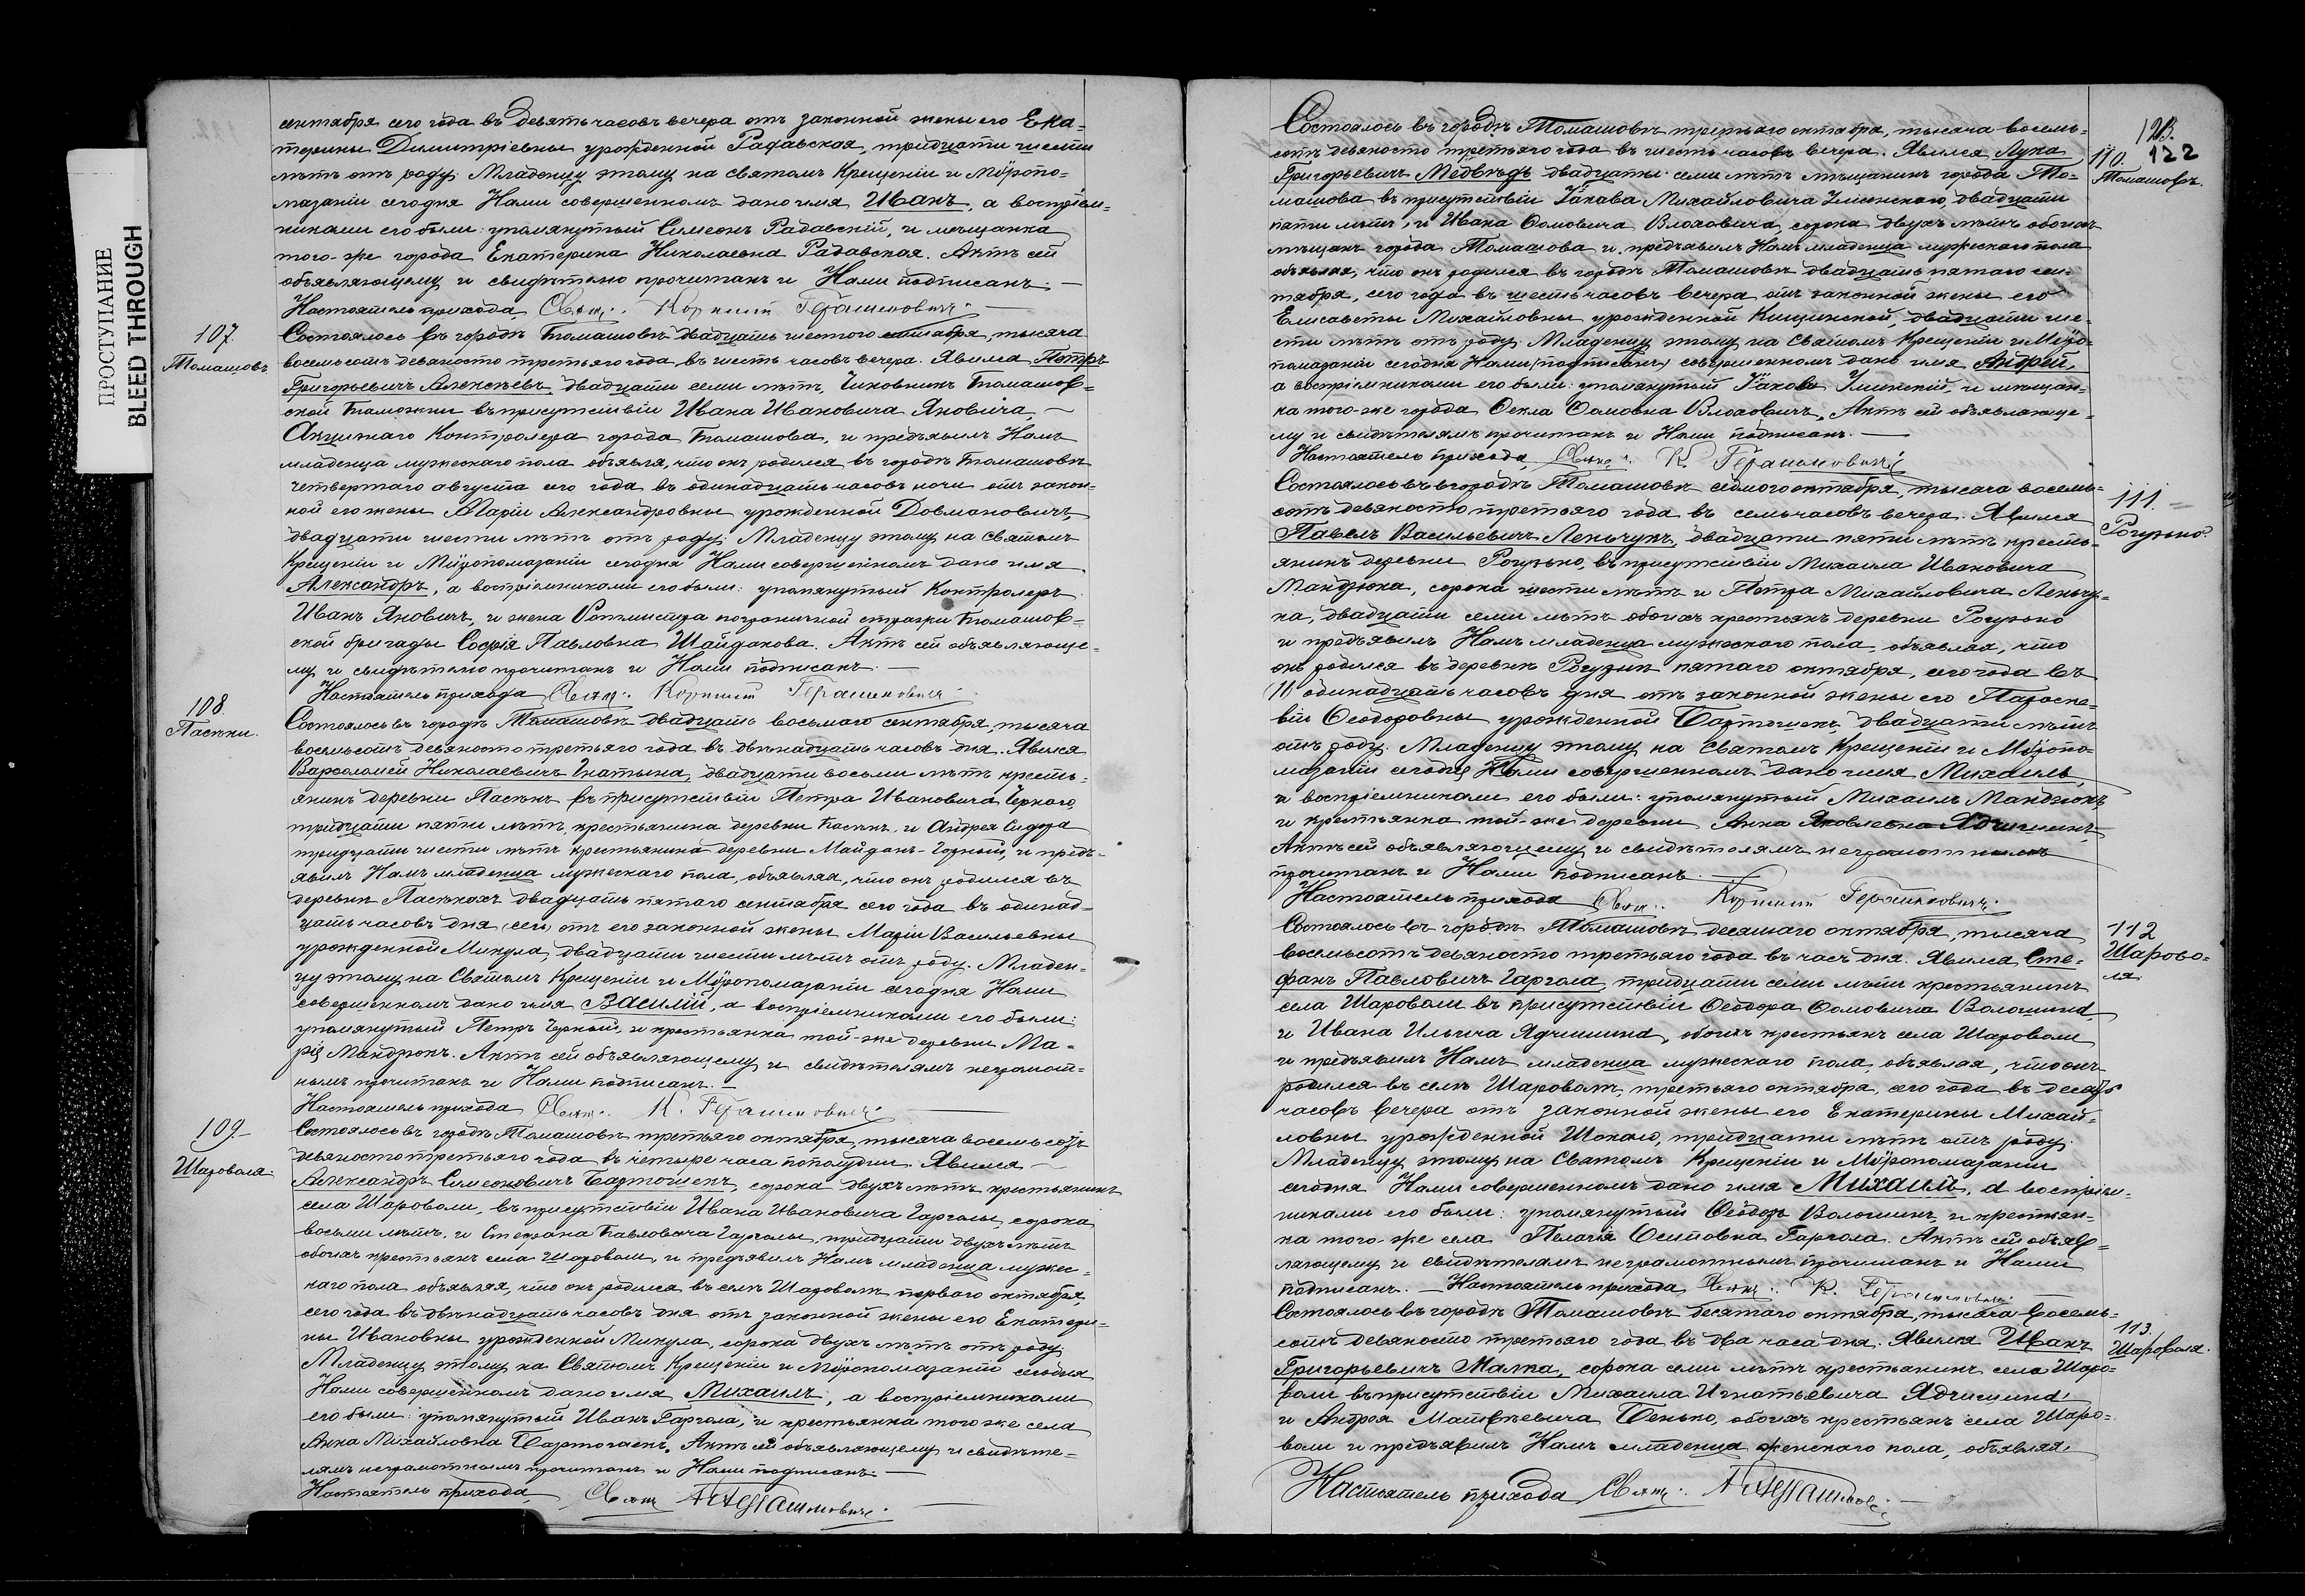 ПРОСТУПАНИЕ
BLEED THROUGH
сентября сего года въ девять часовъ вечера отъ законной жены его Ека-
терины Димитріевны урожденной Радавская, тридцати шести
лѣтъ отъ роду. Младенцу этому на святомъ Крещеніи и Мѵропо-
мазаніи сегодня Нами совершенномъ дано имя Иванъ, а воспріем-
никами его были: упомянутый Симеонъ Радавскій, и мѣщанка
того-же города Екатерина Николаевна Радавская. Актъ сей
объявляющему и свидѣтелю прочитанъ и Нами подписанъ. —
Настоятель прихода Свящ:. Корнилій Герасименовичъ. —
107.
Томашовъ
Состоялось въ городѣ Томашовѣ двадцать шестого сентября, тысяча
восемьсотъ девяносто третьяго года, въ шесть часовъ вечера. Явился Петръ
Григорьевичъ Алексѣевъ, двадцати семи лѣтъ, Чиновникъ Томашов-
ской Таможни въ присутствіи Ивана Ивановича Яновича, —
Акцизнаго Контролера города Томашова, и предъявилъ Намъ
младенца мужескаго пола объявля, что онъ родился въ городѣ Томашовѣ
четвертаго августа сего года въ одинадцать часовъ ночи отъ закон-
ной его жены Маріи Александровны урожденной Довмановичъ,
двадцати шести лѣтъ отъ роду. Младенцу этому на Святомъ
Крещеніи и Мѵропомазаніи сегодня Нами совершенномъ дано имя
Александръ, а воспріемниками его были: упомянутый Контролеръ
Иванъ Яновичъ, и жена Ротмистра пограничной стражи Томашов-
ской бригады Софія Павловна Шайданова. Актъ сей объявляюще-
му и свидѣтелю прочитанъ и Нами подписанъ. —
Настоятель прихода Свящ:. Корнилій Герасименовичъ
108
Пасѣки.
Состоялось въ городѣ Томашовѣ двадцать восьмаго сентября, тысяча
восемьсотъ девяносто третьяго года въ двѣнадцать часовъ дня. Явился
Варфоломей Николаевичъ Гнатына, двадцати восьми лѣтъ кресть-
янинъ деревни Пасѣкъ въ присутствіи Петра Ивановича Чернаго,
тридцати пяти лѣтъ, крестьянина деревни Пасѣкъ, и Андрея Сидора
тридцати шести лѣтъ крестьянина деревни Майданъ-Горный, и предъ-
явилъ Намъ младенца мужескаго пола, объявляя, что онъ родился въ
деревнѣ Пасѣкахъ двадцать пятаго сентября сего года въ одинад-
цать часовъ дня (сего) отъ его законной жены Маріи Васильевны
урожденной Микула, двадцати шести лѣтъ отъ роду. Младен-
цу этому на Святомъ Крещеніи и Мѵропомазаніи сегодня Нами
совершенномъ дано имя Василій, а воспріемниками его были:
упомянутый Петръ Черный, и крестьянка той-же деревни Ма-
рія Мандзюкъ. Актъ сей объявляющему и свидѣтелямъ неграмот-
нымъ прочитанъ и Нами подписанъ. —
Настоятель прихода Свящ:. К. Герасименовичъ
109.-
Шароволя.
Состоялось въ городѣ Томашовѣ третьяго октября, тысяча восемьсотъ
девяносто третьяго года въ четыре часа пополудни. Явился —
Александръ Симеоновичъ Бартошекъ, сорока двухъ лѣтъ крестьянинъ
села Шароволи, въ присутствіи Ивана Ивановича Гарголы, сорока
восьми лѣтъ, и Стефана Павловича Гарголы, тридцати двухъ лѣтъ
обоихъ крестьянъ села Шароволи, и предъявилъ Намъ младенца мужес-
каго пола, объявляя, что онъ родился въ селѣ Шароволѣ перваго октября,
сего года въ двѣнадцать часовъ дня отъ законной жены его Екатери-
ны Ивановны урожденной Микула, сорока двухъ лѣтъ отъ роду.
Младенцу этому на Святомъ Крещеніи и Мѵропомазаніи сегодня
Нами совершенномъ дано имя Михаилъ, а воспріемниками
его были: упомянутый Иванъ Гаргола, и крестьянка того же села
Анна Михайловна Бартошекъ. Актъ сей объявляющему и свидѣте-
лямъ неграмотнымъ прочитанъ и Нами подписанъ. —
Настоятель прихода, Свящ
122
110.
Томашовъ.
Состоялось въ городѣ Томашовѣ третьяго октября, тысяча восемь-
сотъ девяносто третьяго года въ шесть часовъ вечера. Явился Лука
Григорьевичъ Медвѣдь двадцати семи лѣтъ мѣщанинъ города То-
машова въ присутствіи Іакова Михайловича Улинскаго, двадцати
пяти лѣтъ, и Ивана Ѳомовича Влоховича, сорока двухъ лѣтъ обоихъ
мѣщанъ города Томашова и предъявилъ Намъ младенца мужескаго пола
объявляя, что онъ родился въ городѣ Томашовѣ двадцать пятаго сен-
тября, сего года въ шесть часовъ вечера отъ законной жены его
Елисаветы Михайловны урожденной Кицинской, двадцати ше-
сти лѣтъ отъ роду. Младенцу этому на Святомъ Крещеніи и Мѵро-
помазаніи сегодня Нами (подписанъ) совершенномъ дано имя Андрей,
а воспріемниками его были: упомянутый Іаковъ Улинскій, и мѣщан-
ка того-же города Ѳекла Ѳомовна Влоховичъ. Актъ сей объявляюще-
му и свидѣтелямъ прочитанъ и Нами подписанъ. —
Настоятель прихода, Свящ:. К. Герасименовичъ
111.
Рогузно.
Состоялось въ городѣ Томашовѣ седмого октября, тысяча восемь-
сотъ девяносто третьяго года въ семь часовъ вечера. Явился
Павелъ Васильевичъ Леньчукъ, двадцати пяти лѣтъ кресть-
янинъ деревни Рогузно, въ присутствіи Михаила Ивановича
Мандзюка, сорока шести лѣтъ и Петра Михайловича Леньчу-
ка, двадцати семи лѣтъ обоихъ крестьянъ деревни Рогузно
и предъявилъ Намъ младенца мужескаго пола, объявляя, что
онъ родился въ деревнѣ Рогузнѣ пятаго октября, сего года въ
11 одинадцать часовъ дня отъ законной жены его Параске-
віи Ѳеодоровны урожденной Бартошекъ, двадцати лѣтъ
отъ роду. Младенцу этому на Святомъ Крещеніи и Мѵропо-
мазаніи сегодня Нами совершенномъ дано имя Михаилъ,
и воспріемниками его были: упомянутый Михаилъ Мандзюкъ,
и крестьянка той-же деревни Анна Яковлевна Ядчишинъ,
Актъ сей объявляющему и свидѣтелямъ неграмотнымъ
прочитанъ и Нами подписанъ. —
Настоятель прихода Свящ:. Корнилій Герасименовичъ.
112
Шарово-
ля
Состоялось въ городѣ Томашовѣ десятаго октября, тысяча
восемьсотъ девяносто третьяго года въ часъ дня. Явился Сте-
фанъ Павловичъ Гаргола, тридцати семи лѣтъ крестьянинъ
села Шароволи въ присутствіи Ѳеодора Ѳомовича Волошина,
и Ивана Ильича Ядчишина, обоихъ крестьянъ села Шароволи
и предъявилъ Намъ младенца мужескаго пола, объявляя, что онъ
родился въ селѣ Шароволѣ, третьяго октября, сего года въ десять
часовъ вечера отъ законной жены его Екатерины Михай-
ловны урожденной Шокало, тридцати лѣтъ отъ роду.
Младенцу этому на Святомъ Крещеніи и Мѵропомазаніи
сегодня Нами совершенномъ дано имя Михаилъ, а воспріем-
никами его были: упомянутый Ѳеодоръ Волошинъ, и крестьян-
ка того-же села Пелагія Осиповна Гаргола. Актъ сей объяв-
ляющему и свидѣтелямъ неграмотнымъ прочитанъ и Нами
подписанъ. — Настоятель прихода Свящ:. К. Герасименовичъ. —
113.
Шароволя.
Состоялось въ городѣ Томашовѣ десятаго октября, тысяча восемь-
сотъ девяносто третьяго года въ два часа дня. Явился Иванъ
Григорьевичъ Малка, сорока семи лѣтъ крестьянинъ села Шаро-
воли въ присутствіи Михаила Игнатьевича Ядчишина
и Андрея Матѳѣевича Бенько, обоихъ крестьянъ села Шаро-
воли и предъявилъ Намъ младенца женскаго пола, объявляя
Настоятель прихода Свящ:.